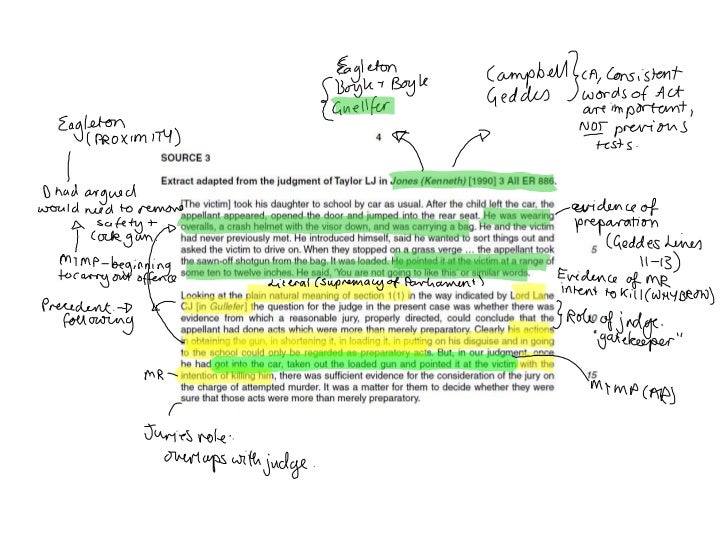 Eagleton
Boyle + Boyle
Gnellfer
Campbell
Geddes
CA, Consistent
words of Act
are important,
NOT previous
tests.
4
Eagleton
(PROXIMITY)
D had argued
would need to remove
safety +
Cock gun
MTMP - beginning
to carry out offence
Precedent →
following
MR
Juries role.
overlaps with judge.
SOURCE 3
Extract adapted from the judgment of Taylor LJ in Jones (Kenneth) [1990] 3 All ER 886.
[The victim] took his daughter to school by car as usual. After the child left the car, the
appellant appeared, opened the door and jumped into the rear seat. He was wearing
overalls, a crash helmet with the visor down, and was carrying a bag. He and the victim
had never previously met. He introduced himself, said he wanted to sort things out and
asked the victim to drive on. When they stopped on a grass verge ... the appellant took
the sawn-off shotgun from the bag. It was loaded. He pointed it at the victim at a range of
some ten to twelve inches. He said, 'You are not going to like this' or similar words.
Literal (Supremacy of Parliament)
Looking at the plain natural meaning of section 1(1) in the way indicated by Lord Lane
CJ [in Gullefer] the question for the judge in the present case was whether there was
evidence from which a reasonable jury, properly directed, could conclude that the
appellant had done acts which were more than merely preparatory. Clearly his actions
in obtaining the gun, in shortening it, in loading it, in putting on his disguise and in going
to the school could only be regarded as preparatory acts. But, in our judgment, once
he had got into the car, taken out the loaded gun and pointed it at the victim with the
intention of killing him, there was sufficient evidence for the consideration of the jury on
the charge of attempted murder. It was a matter for them to decide whether they were
sure that those acts were more than merely preparatory.
evidence of
preparation
5
(Geddes Lines
11-13)
Evidence of MR
intent to kill (WHYBROW)
10
Role of judge.
"gatekeeper"
15
MTMP (AR)